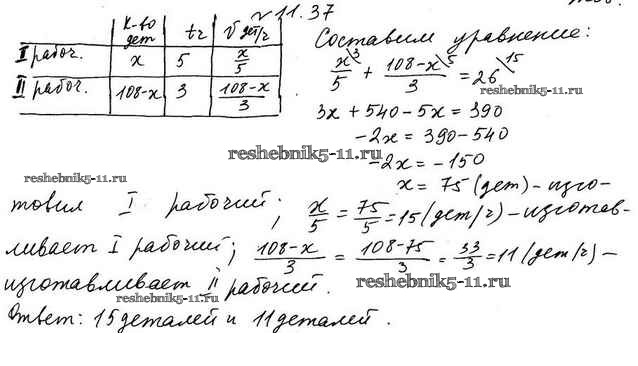 №11.37
к-во дет | t ч | V дет/ч
I рабоч. | x | 5 | x/5
II рабоч. | 108-x | 3 | (108-x)/3
Составим уравнение:
x/5 \3 + (108-x)/3 \5 = 26 \15
reshebnik5-11.ru
3x + 540 - 5x = 390
-2x = 390 - 540
reshebnik5-11.ru
-2x = -150
reshebnik5-11.ru
x = 75 (дет) - изго-
товил I рабочий; x/5 = 75/5 = 15 (дет/ч) - изготав-
ливает I рабочий; (108-x)/3 = (108-75)/3 = 33/3 = 11 (дет/ч) -
изготавливает II рабочий.
reshebnik5-11.ru
reshebnik5-11.ru
Ответ: 15 деталей и 11 деталей.